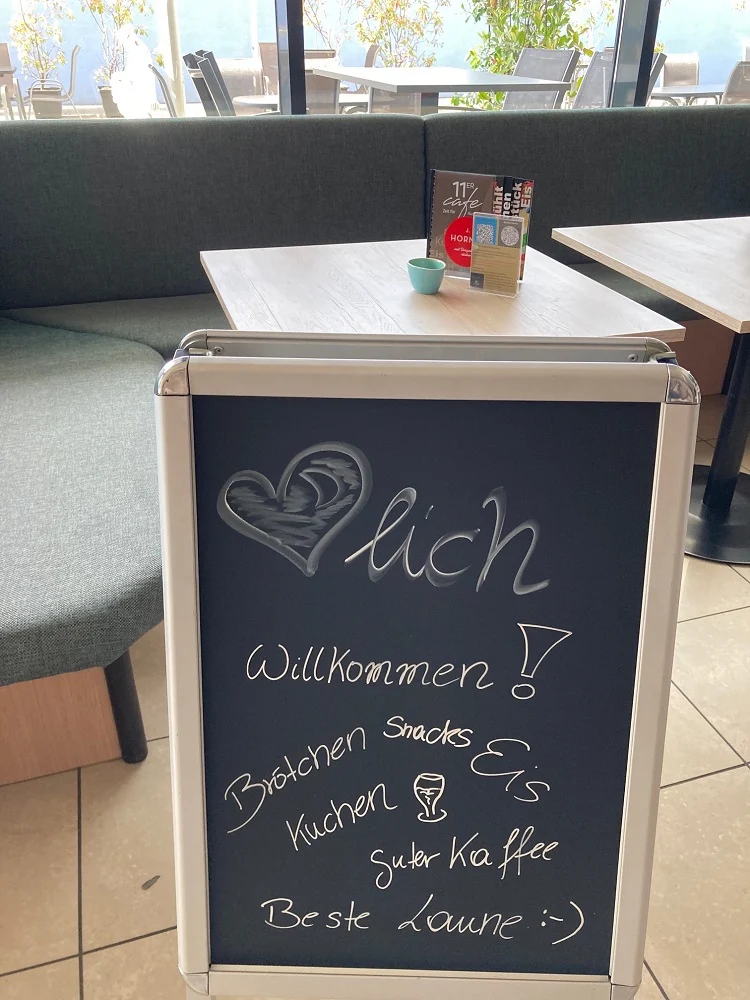 11ER
cafe
HORN
ühlt
nen
stück
Eis
lich
Willkommen!
Brötchen Snacks Eis
Kuchen
guter Kaffee
Beste Laune :-)